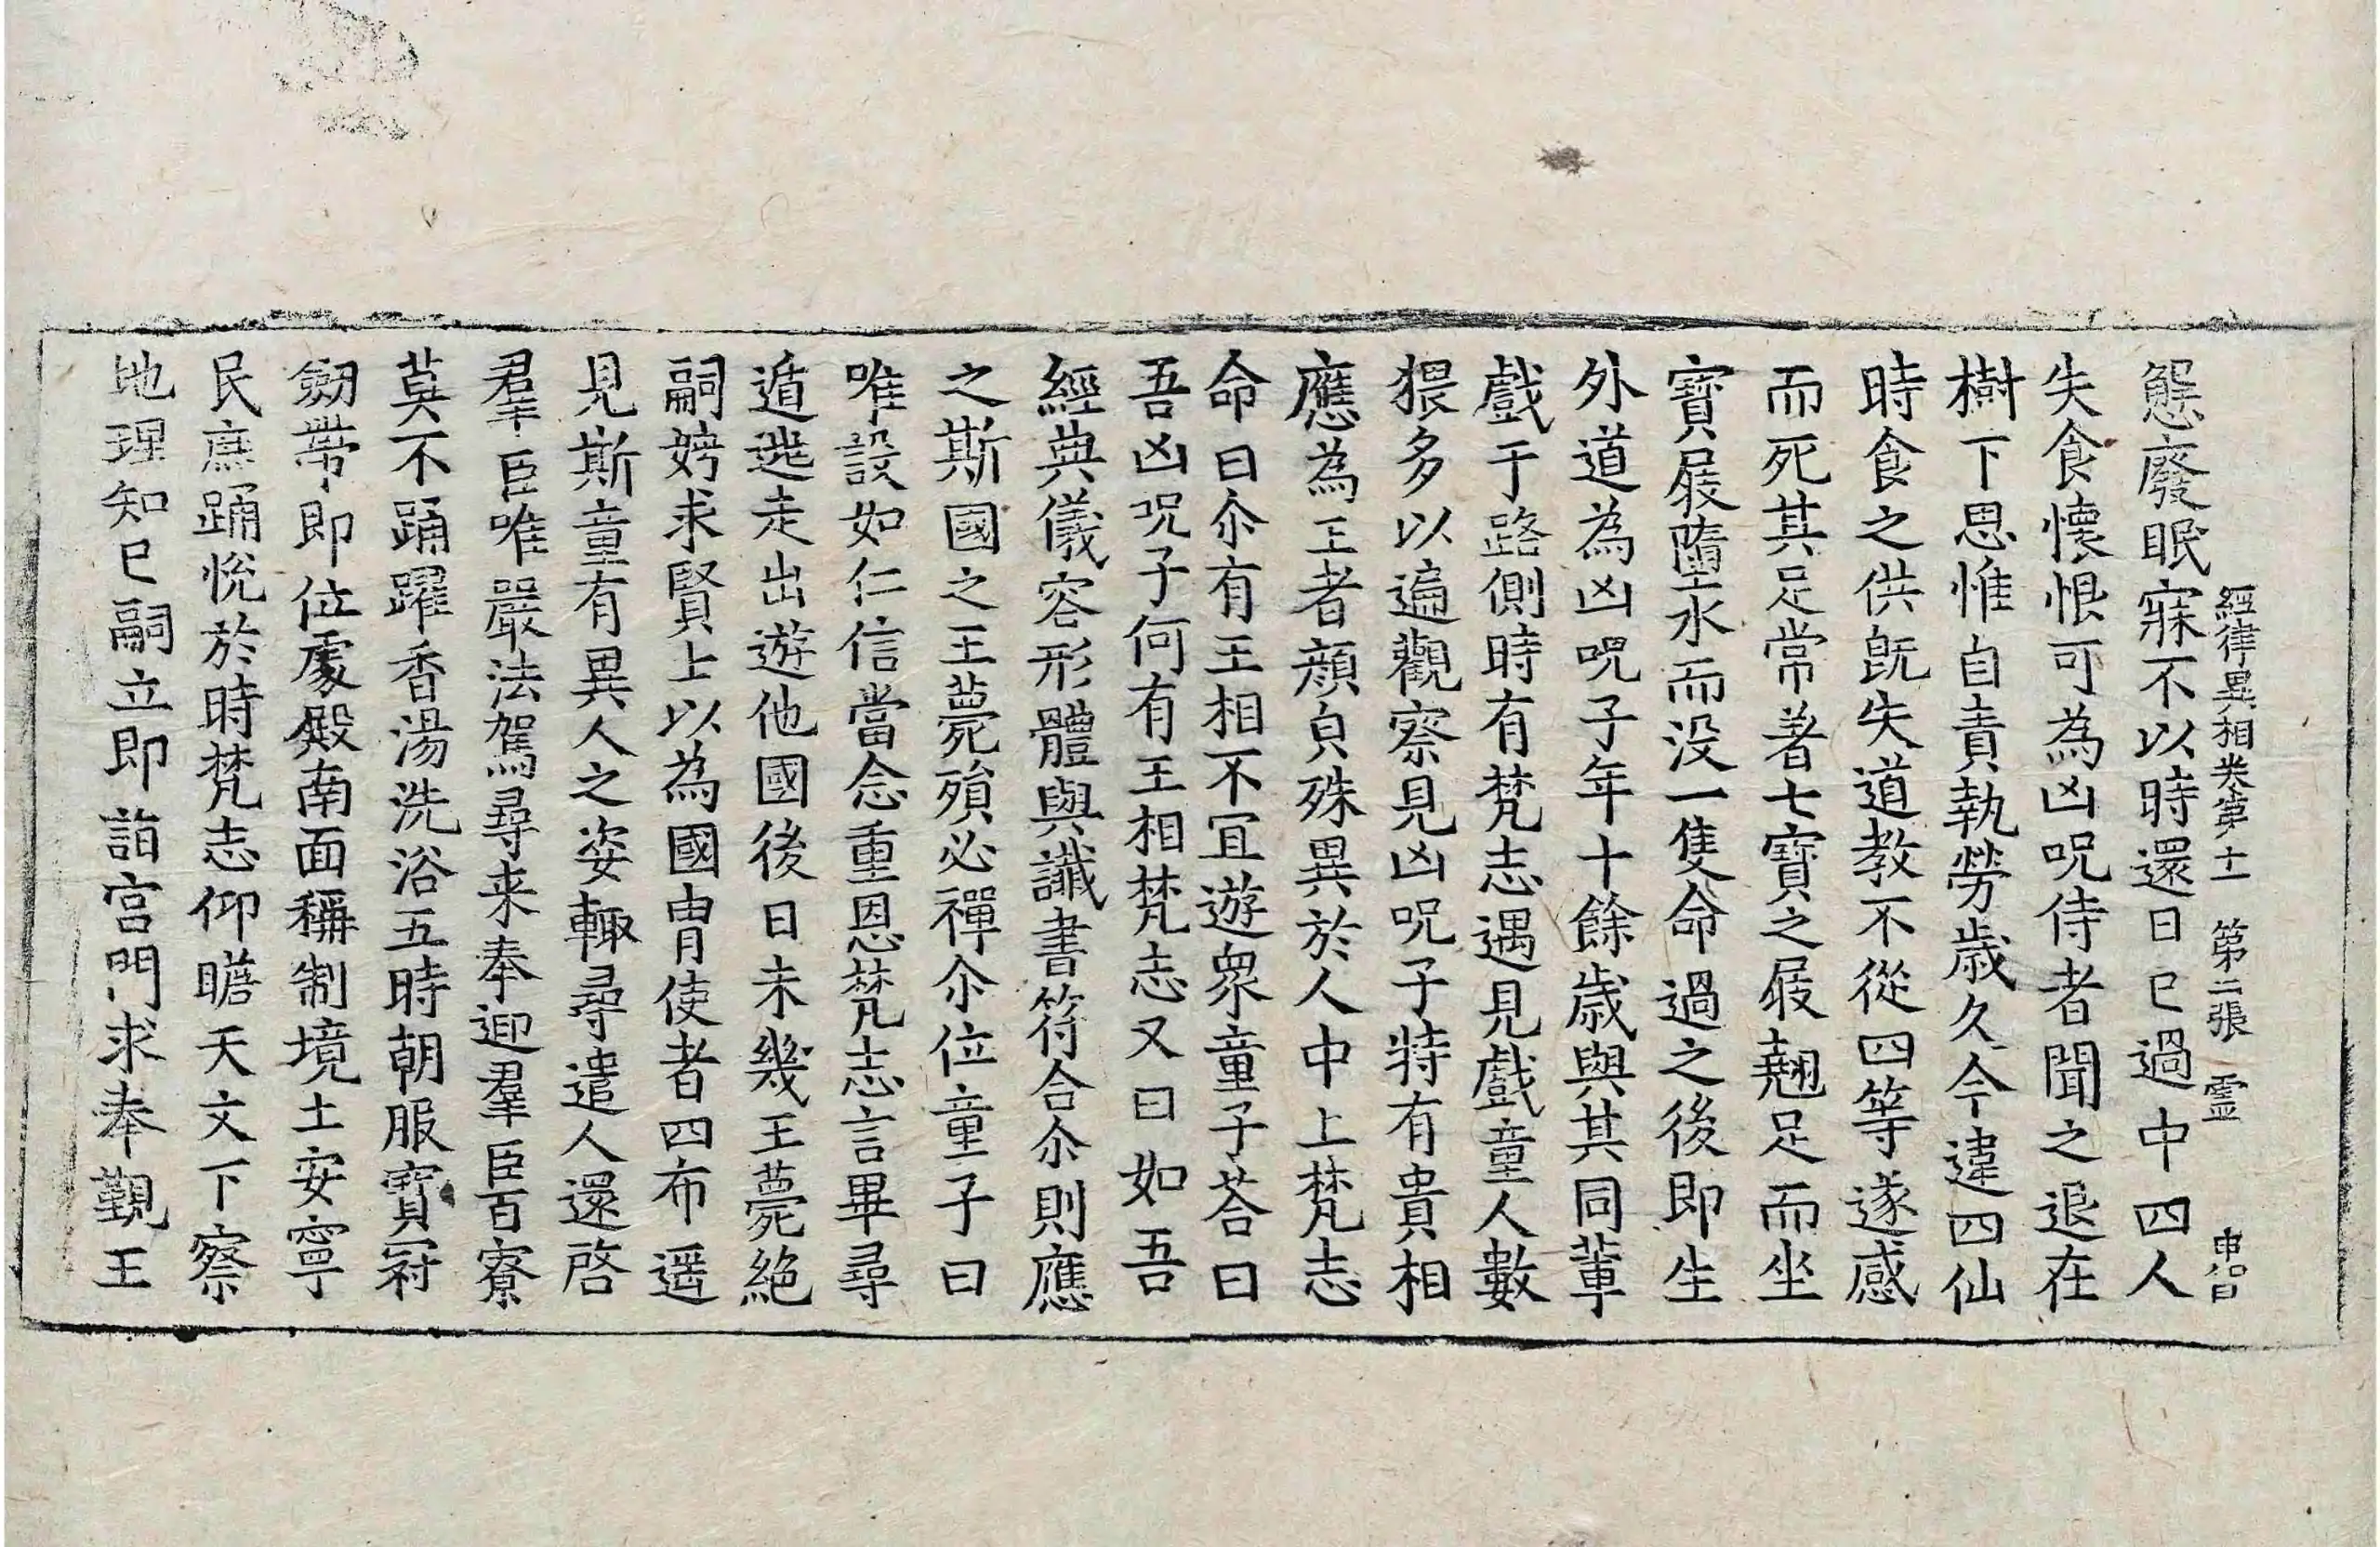 經律異相卷第十一 第二張 霊 申智
態廢眠寐不以時還日已過中四人
失食懷恨可為凶呪侍者聞之退在
樹下思惟自責執勞歲久今違四仙
時食之供旣失道教不從四等遂感
而死其足常著七寶之屐翹足而坐
寶屐墮水而没一隻命過之後即生
外道為凶呪子年十餘歲與其同輩
戲于路側時有梵志遇見戲童人數
猥多以遍觀察見凶呪子特有貴相
應為王者顔皃殊異於人中上梵志
命曰尒有王相不宜遊衆童子荅曰
吾凶呪子何有王相梵志又曰如吾
經典儀容形體與讖書符合尒則應
之斯國之王薨殞必禪尒位童子曰
唯設如仁信當念重恩梵志言畢尋
遁逃走出遊他國後日未幾王薨絶
嗣娉求賢上以為國胄使者四布遥
見斯童有異人之姿輙尋遣人還啓
羣臣唯嚴法駕尋来奉迎羣臣百寮
莫不踊躍香湯洗浴五時朝服寶冠
劒帶即位處殿南面稱制境土安寧
民庶踊恱於時梵志仰瞻天文下察
地理知已嗣立即詣宫門求奉覲王